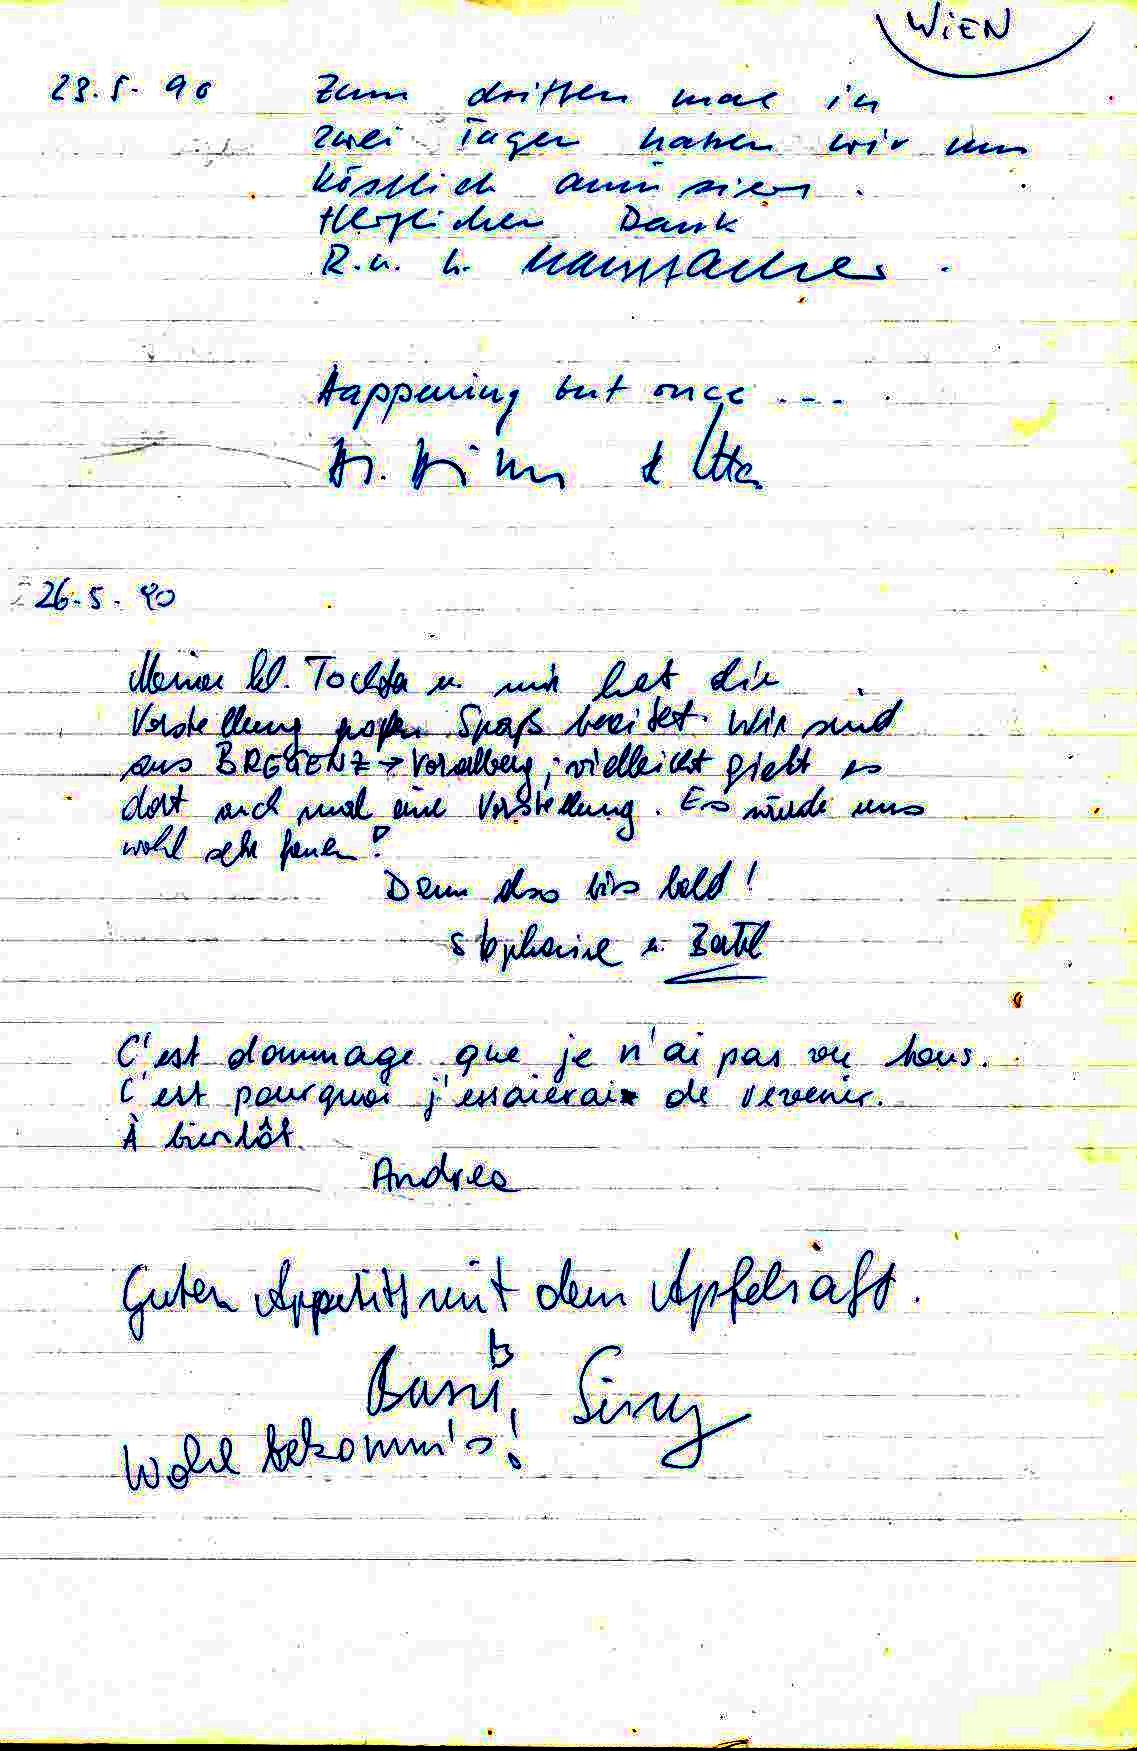 WIEN
23.5.90 Zum dritten mal in
zwei Tagen haben wir uns
köstlich amüsiert.
Herzlichen Dank
R. u. h.
Happening but once ...
&
26.5.90
Meiner kl. Tochter u. mir hat die
Vorstellung großen Spaß bereitet. Wir sind
aus BREGENZ → Vorarlberg, vielleicht giebt es
dort auch mal eine Vorstellung. Es würde uns
wohl sehr freuen!
Denn also bis bald!
Stephanie u.
C'est dommage que je n'ai pas vu tous.
C'est pourquoi j'essaierai de revenir.
À bientôt
Andrea
Guten Appetitt mit dem Apfelsaft.
Wohl bekomm's!